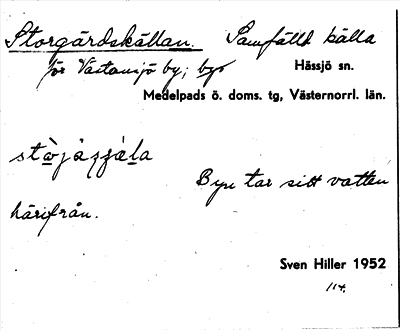 Storgårdskällan. Samfälld källa
för Västansjö by; bys Hässjö sn.
Medelpads ö. doms. tg, Västernorrl. län.
Byn tar sitt vatten
härifrån.
Sven Hiller 1952